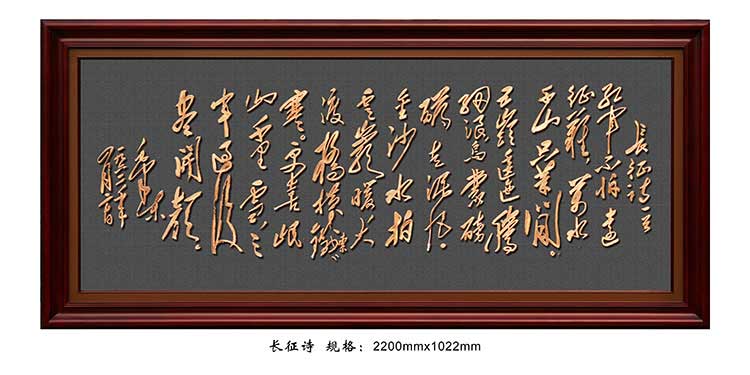 長征詩一首
紅軍不怕遠
征難萬水
千山只等閒
五嶺逶迤騰
細浪烏蒙磅
礴走泥丸
金沙水拍
雲崖暖大
渡橋橫鐵索
寒。更喜岷
山千里雪三
軍過後
盡開顏
毛澤東
一九六二年
四月廿日
长征诗 规格：2200mmx1022mm